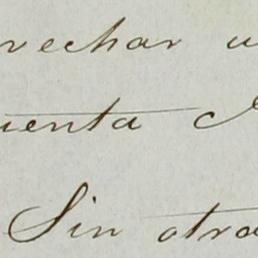 rvechar u
uenta
Sin otra